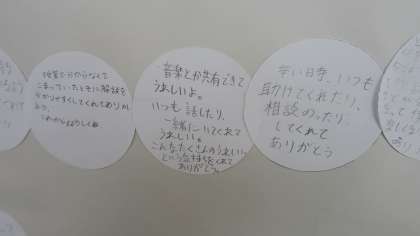 授業で分からなくて
こまっていたときに解説を
分かりやすくしてくれてありが
とう。
これからもよろしくね
音楽とか共有できて
うれしいよ。
いつも話したり、
一緒にいてくれて
うれしい。
こんなたくさんのうれしい
という気持ちをくれて
ありがとう。
辛い時、いつも
助けてくれたり、
相談のったり、
してくれて
ありがとう